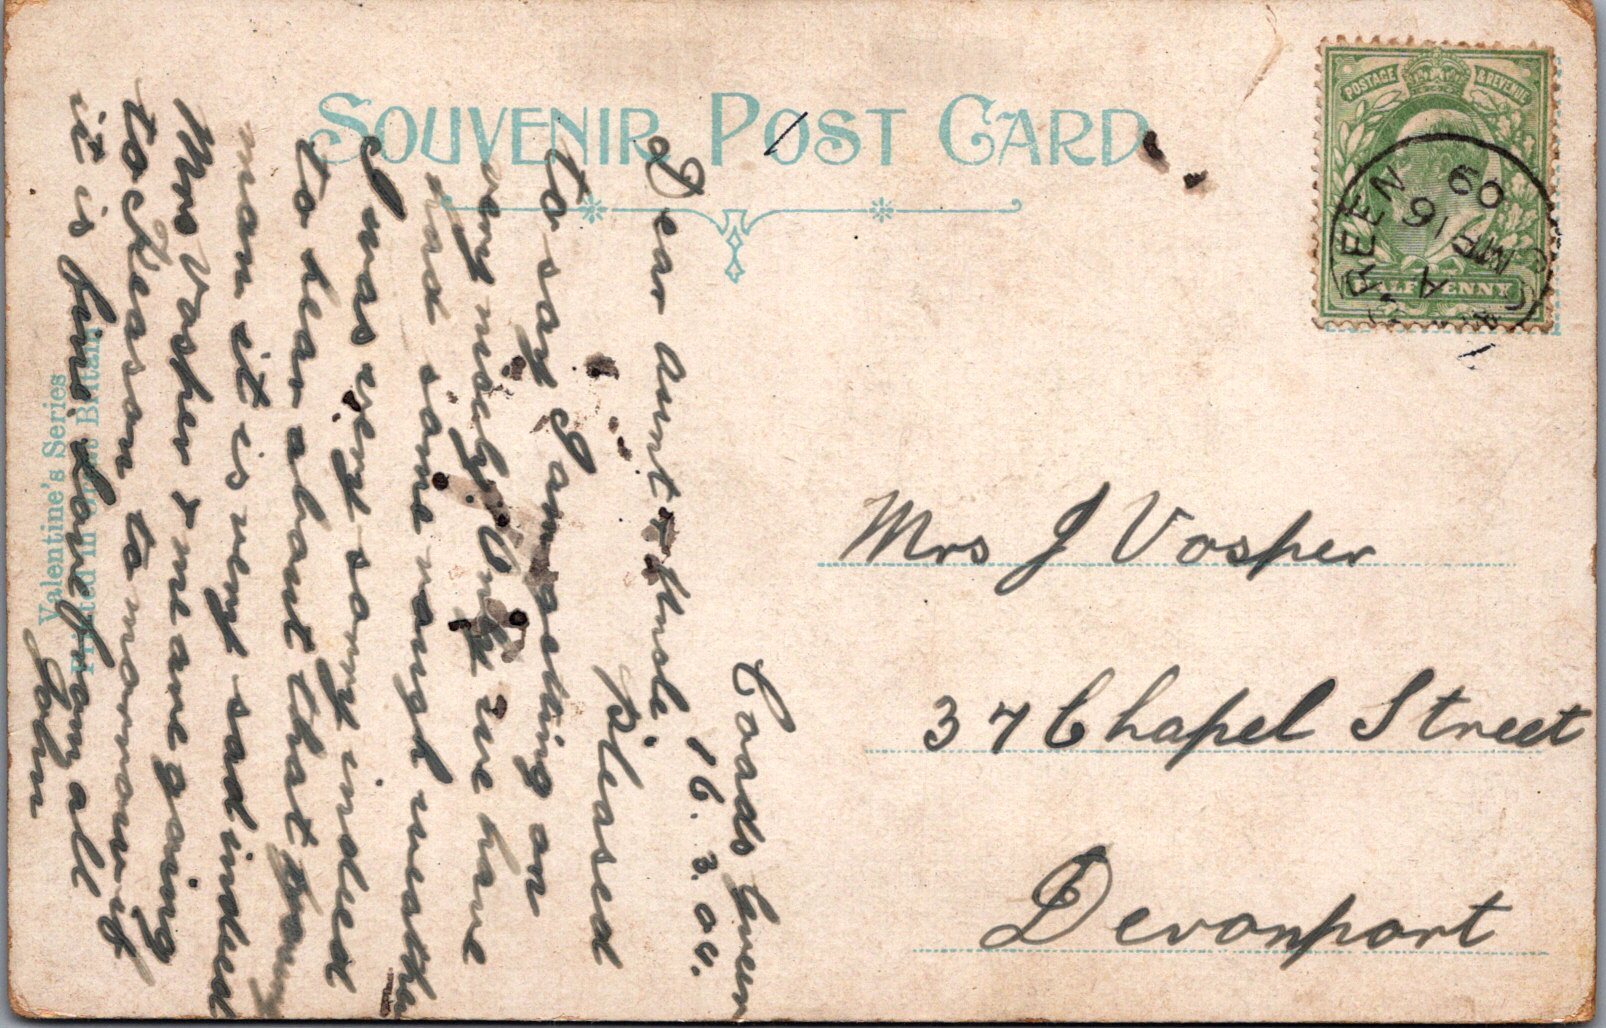 SOUVENIR POST CARD
POSTAGE & REVENUE
HALFPENNY
GREEN
A
MR 16
09
Coads Green
16.3.09.
Dear Aunt & Uncle
Pleased
to say I am getting on
very nicely. Only we have
had some rough weather
I was very sorry indeed
to hear about that poor
man it is very sad indeed
Mrs Vosper & me are going
to to morrow if
it is fine. Love from all
John
Mrs J Vosper
37 Chapel Street
Devonport
Valentine's Series
Printed in Great Britain